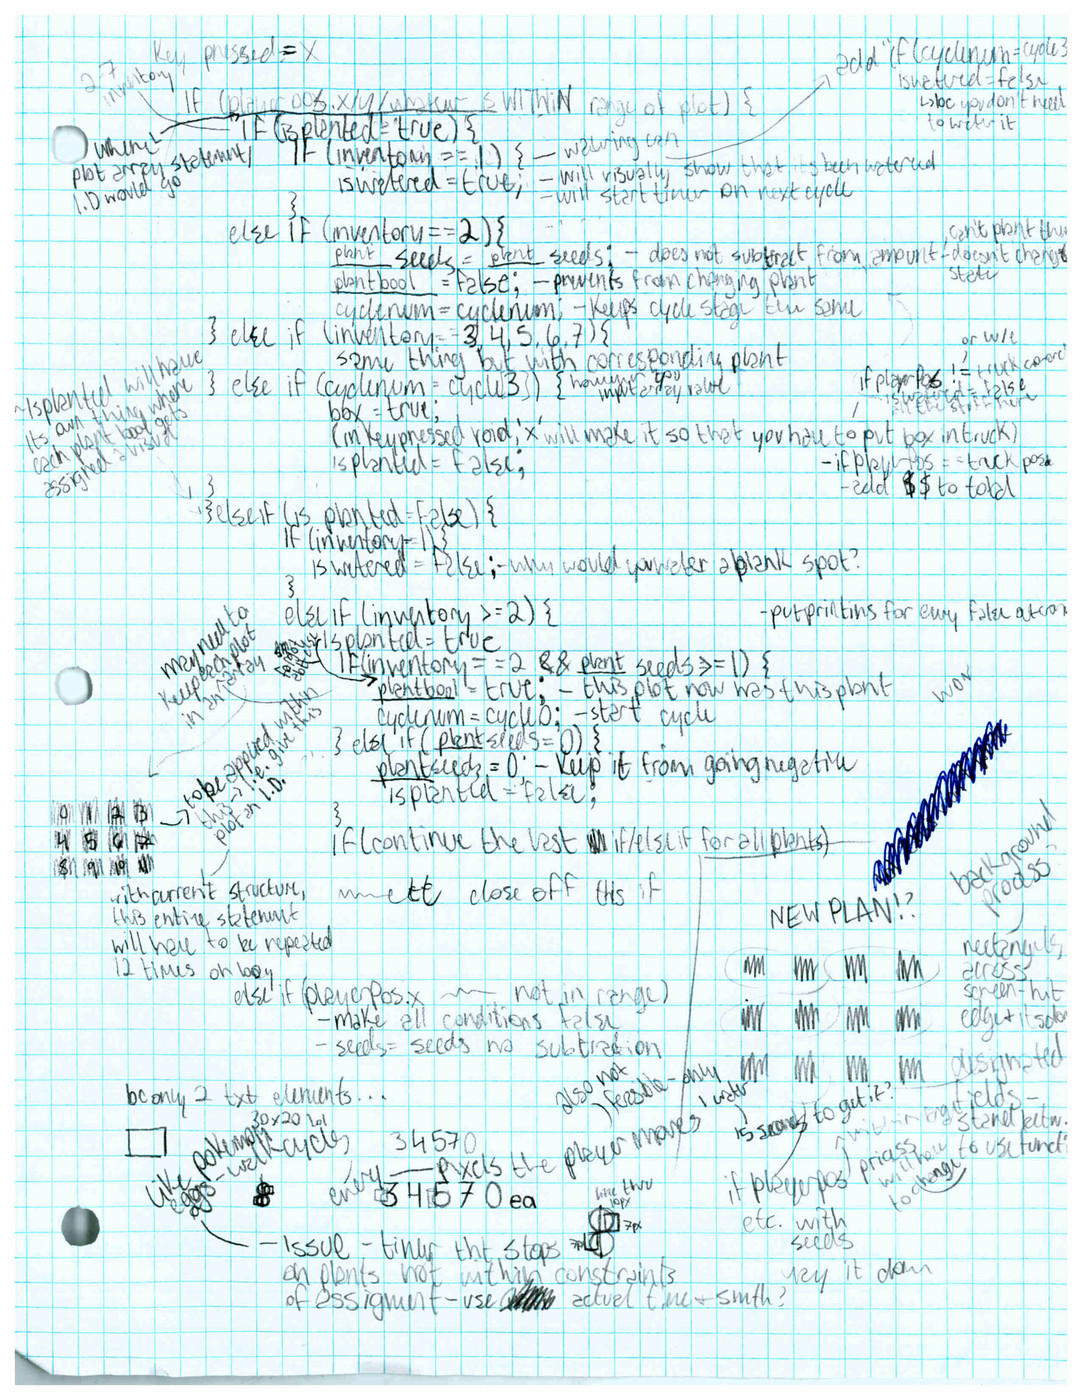 Key pressed = X
2-7
inventory
IF (player pos.x/y/whatever is WITHIN range of plot) {
add "if (cyclenum = cycle3
iswatered = false
↳ bc you don't need
to water it
where
plot array statement/
I.D would go
if (is planted = true) {
IF (inventory == 1) { — watering can
iswatered = true; - will visually show that its been watered
- will start timer on next cycle
}
else IF (inventory == 2) {
plant seeds = plant seeds; - does not subtract from amount
can't plant thu
- doesn't change
state
plant bool = false; - prevents from changing plant
cyclenum = cyclenum; - keeps cycle stage the same
} else if (inventory == 3, 4, 5, 6, 7) {
same thing but with corresponding plant
} else if (cyclenum = cycle3)) {
input array value
box = true;
(in keypressed void, 'x' will make it so that you have to put box in truck)
is planted = false;
}
or w/e
if playerPos != truck coord
is watered = false
all the stuff here
- if playerPos == truck pos
- add $$ to total
~ Isplanted will have
its own thing where
each plant bool gets
assigned a visual
} else if (is planted = false) {
IF (inventory = 1) {
is watered = false; - why would you water a blank spot?
}
else if (inventory >= 2) {
- put printlns for every false outcom
isplanted = true
IF (inventory == 2 && plant seeds >= 1) {
plant bool = true; - this plot now has this plant
cyclenum = cycle0; - start cycle
} else if (plant seeds = 0) {
plant seeds = 0; - keep it from going negative
isplanted = false;
}
if (continue the last if/else if for all plants)
close off this if
may need to
keep each plot
in an array
to be applied within
this → i.e. give this
plot an I.D.
0 1 2 3
4 5 6 7
8 9
with current structure,
this entire statement
will have to be repeated
12 times oh boy
else if (playerPos.x not in range)
- make all conditions false
- seeds = seeds no subtraction
wow
NEW PLAN!?
background
process
rectangles
across
screen - hit
edge + it's done
designated
fields -
stand betw.
to use functi
bc only 2 txt elements...
30x20
like pokemon
eggs - walk cycles
34570
every pixels the player moves
34570 ea
also not
feasible - only
1 water
15 seconds to get it?
prices
will have
to change
line thru
10px
7px
if playerpos
etc. with
seeds
key it down
- Issue - timer tht stops
on plants not within constraints
of assigment - use actual time + smth?